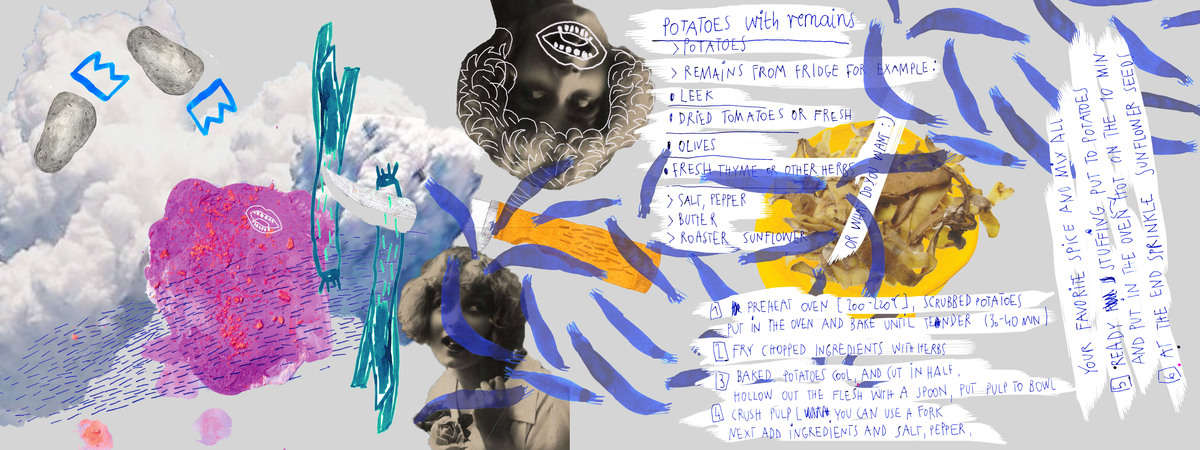 POTATOES with remains
> POTATOES
> REMAINS FROM FRIDGE FOR EXAMPLE:
• LEEK
• DRIED TOMATOES OR FRESH
• OLIVES
• FRESH THYME OR OTHER HERBS
> SALT, PEPPER
> BUTTER
> ROASTER SUNFLOWER
OR WHAT DO YOU WANT :)
1 PREHEAT OVEN [200-220°C], SCRUBBED POTATOES
PUT IN THE OVEN AND BAKE UNTIL TEANDER (30-40 MIN)
2. FRY CHOPPED INGREDIENTS WITH HERBS
3 BAKED POTATOES COOL, AND CUT IN HALF.
HOLLOW OUT THE FLESH WITH A SPOON, PUT PULP TO BOWL
4 CRUSH PULP [ YOU CAN USE A FORK
NEXT ADD INGREDIENTS AND SALT, PEPPER,
YOUR FAVORITE SPICE AND MIX ALL
5 • READY STUFFING PUT TO POTATOES
AND PUT IN THE OVEN HOT ON THE 10 MIN
6 AT THE END SPRINKLE SUNFLOWER SEEDS